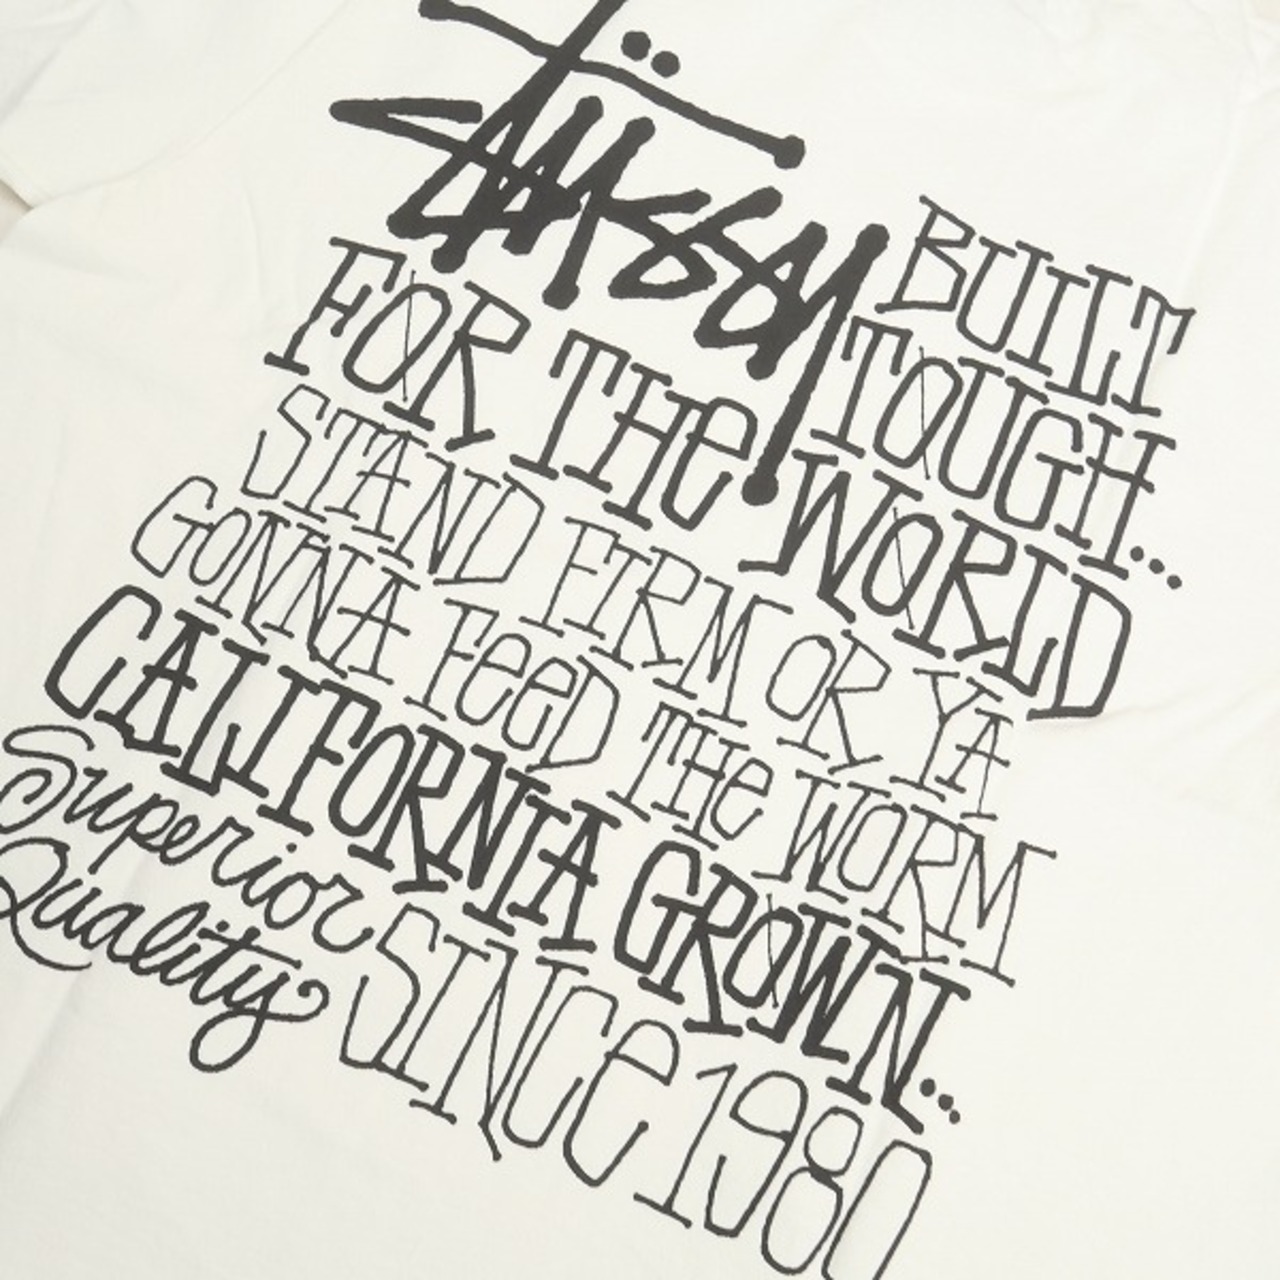 Stüssy BUILT
TOUGH...
FOR THe WORLD
STAND FIRM OR YA
GONNA FeeD THe WORM
CALIFORNIA GROWN...
Superior
Quality SINCe 1980